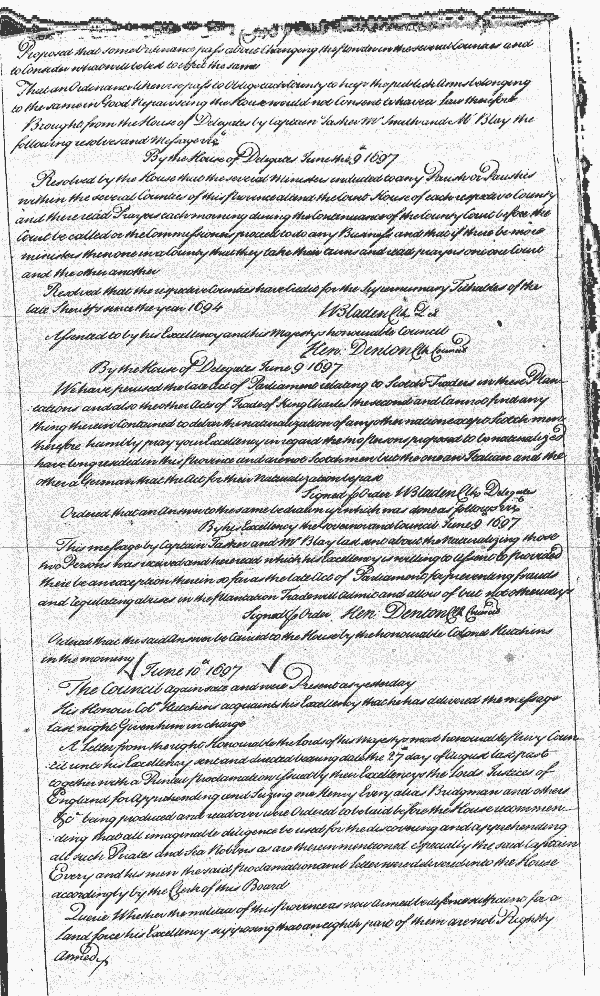 Proposed that some Ordinance pass about Changing the Powder in the several Counties and
to Consider what will be best to effect the same
That an Ordinance likewise pass to oblige each County to keep the publick Arms belonging
to the same in Good Repair seing the House would not Consent to have a law therefore
Brought from the House of Delegates by Captain Tasker Mr Smith and Mr Blay the
following resolves and Messages viz
By the House of Delegates June the 9th 1697
Resolved by the House that the several Ministers inducted to any Parish or Parishes
within the several Counties of this Province attend the Court House of each respective County
and there read Prayers each morning during the Continuance of the County Court before the
Court be called or the Commissioners proceed to do any Business and that if there be more
ministers then one in a County that they take their turns and read prayers one one Court
and the other another
Resolved that the respective Counties have Credit for the Supernumary Tithables of the
late Sheriffs since the year 1694
WBladen Clk D s
Assented to by his Excellency and his Majestys honourable Council
Hen: Denton Clk Council
By the House of Delegates June 9 1697
We have perused the late Act of Parliament relating to Scotch Traders in these Plan-
tations and also the other Acts of Trade of King Charles the second and Cannot find any
thing therein Contained to debar the naturalization of any other nation except Scotch men
therefore humbly pray your Excellency in regard the two persons proposed to be naturalized
have long resided in this Province and are not Scotch men but the one an Italian and the
other a German that the Act for their Naturalization be past
Signed p Order WBladen Clk Delegates
Ordered that an Answer to the same be drawn up which was done as follows viz
By his Excellency the Governor and Council June 9 1697
This message by Captain Tasker and Mr Blay last sent about the Naturalizing those
two Persons was received and here read which his Excellency is willing to Assent to provided
there be an exception therein so far as the late Act of Parliament for preventing frauds
and regulating abuses in the plantation Trade will admit and allow of but not otherways
Signed p Order Hen. Denton Clk Council
Ordered that the said Answer be Carried to the House by the honourable Colonel Hutchins
in the morning
June 10th 1697
The Council again sate and were Present as yesterday
His Honour Colo Hutchins acquaints his Excellency that he has delivered the message
last night Given him in charge
A Letter from the right Honourable the Lords of his Majestys most honourable Privy Coun-
cil unto his Excellency sent and directed bearing date the 27 day of August last past
together with a Printed Proclamation issued by their Excellencys the Lords Justices of
England for Apprehending and Seizing one Henry Every alias Bridgman and others
&ca being produced and read were Ordered to be laid before the House recommen-
ding that all imaginable diligence be used for the discovering and apprehending
all such Pirates and Sea Robbers as are therein mentioned especially the said Captain
Every and his men the said proclamation and letter were delivered into the House
accordingly by the Clerk of this Board
Querie Whether the militia of this Province as now Armed be defence sufficient for a
land force his Excellency supposing that an eighth part of them are not Rightly
Armed